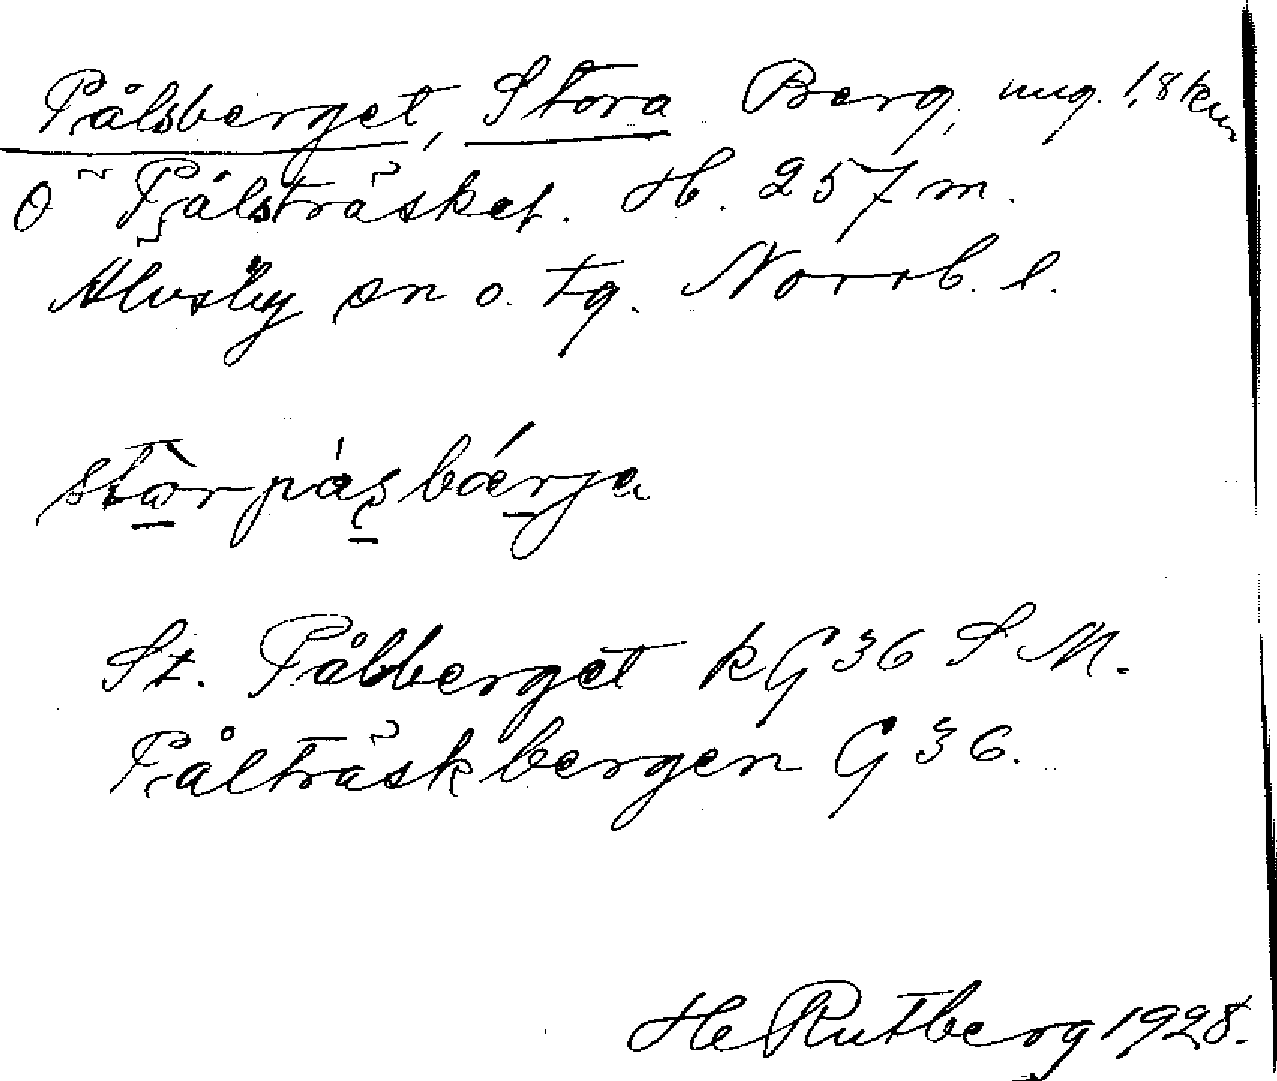 Pålsberget, Stora Berg, ung. 1,8 km
Ö Pålsträsket. H. 257 m.
Älvsby sn o. tg. Norrb. l.
stòrpáṣbǽrja
St. Pålberget kG36 S M.
Pålträskbergen G 36.
He Rutberg 1928.